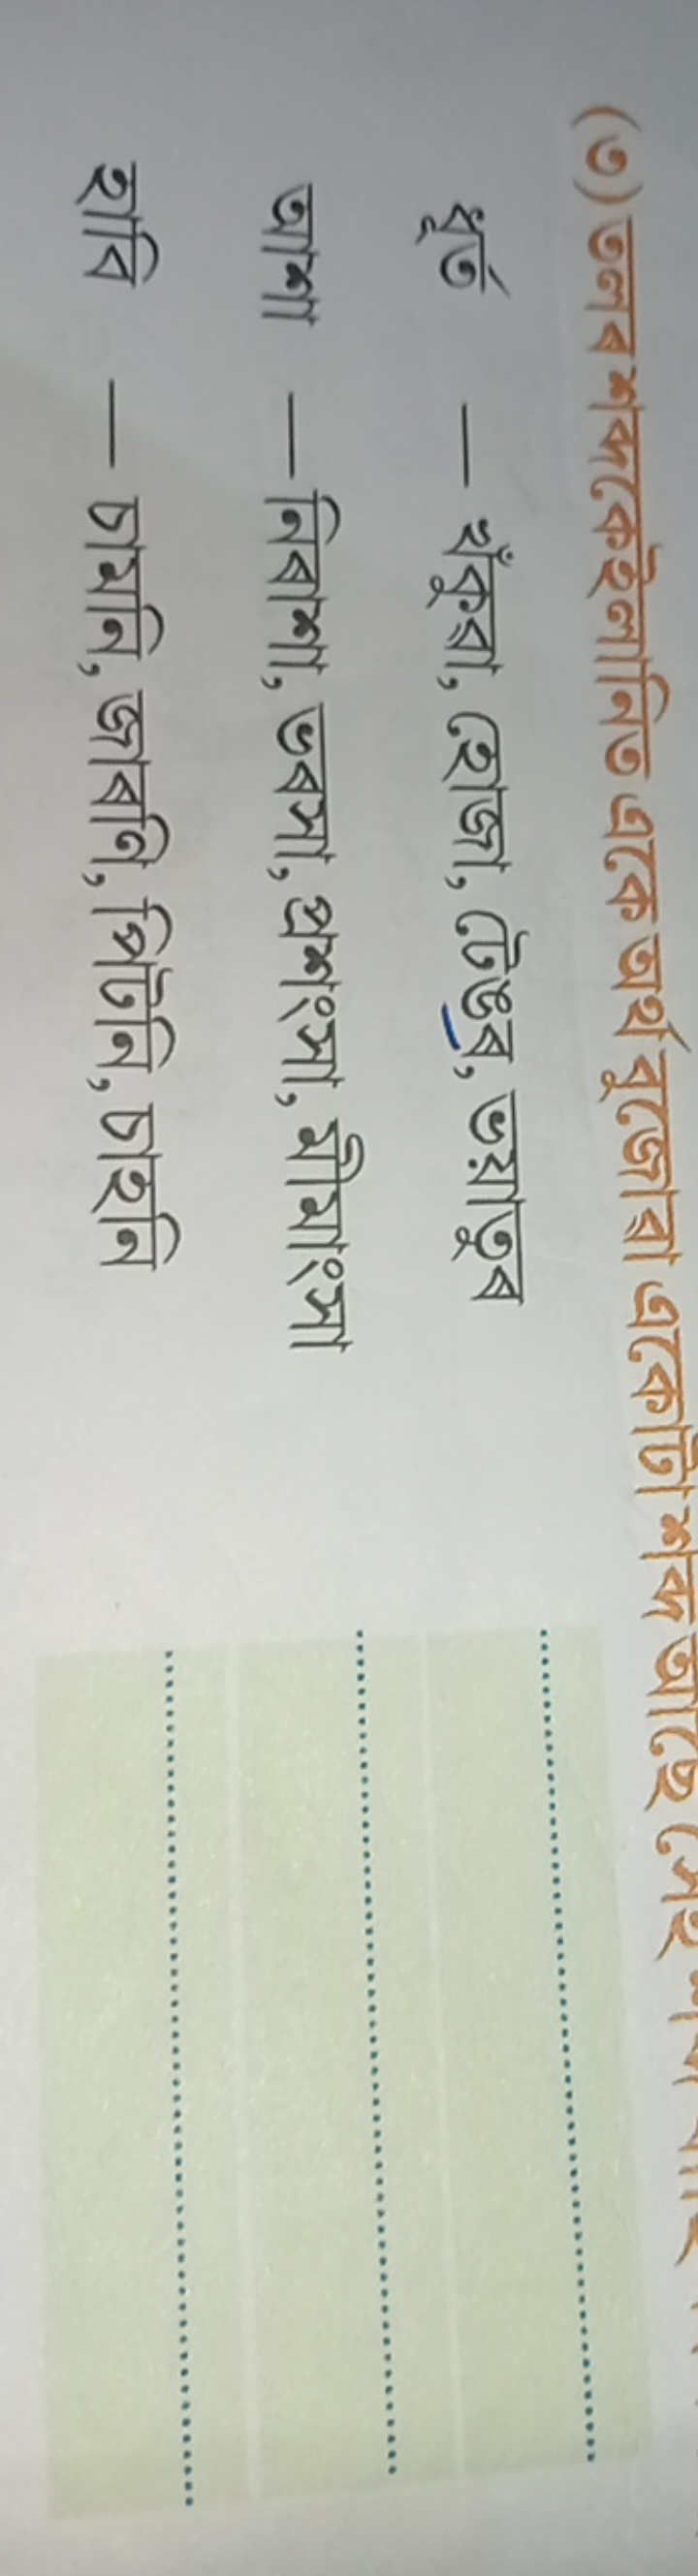 (৩) তলৰ শব্দকেইলানিত একে অৰ্থ বুজোৱা একোটা শব্দ আছে সেই
ধূৰ্ত — খাঁকুৱা, হোজা, টেঙৰ, ভয়াতুৰ
আশা — নিৰাশা, ভৰসা, প্ৰশংসা, মীমাংসা
হাবি — চামনি, জাবনি, পিটনি, চাহনি